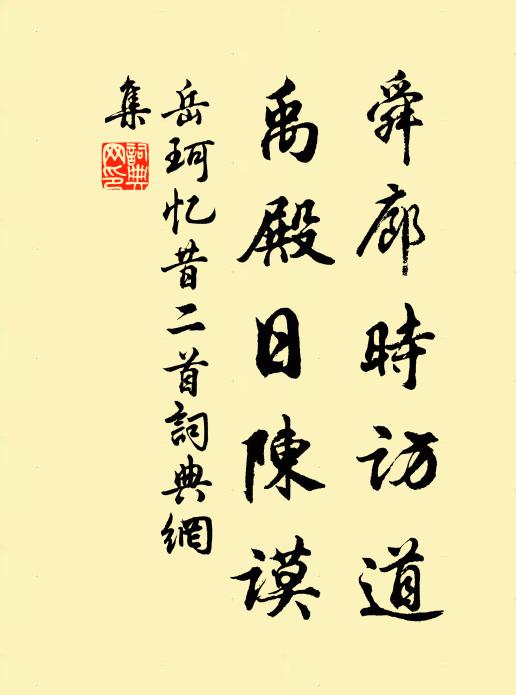 舜廊時訪道
禹殿日陳謨
岳珂忆昔二首詞典網
集
詞典
网印